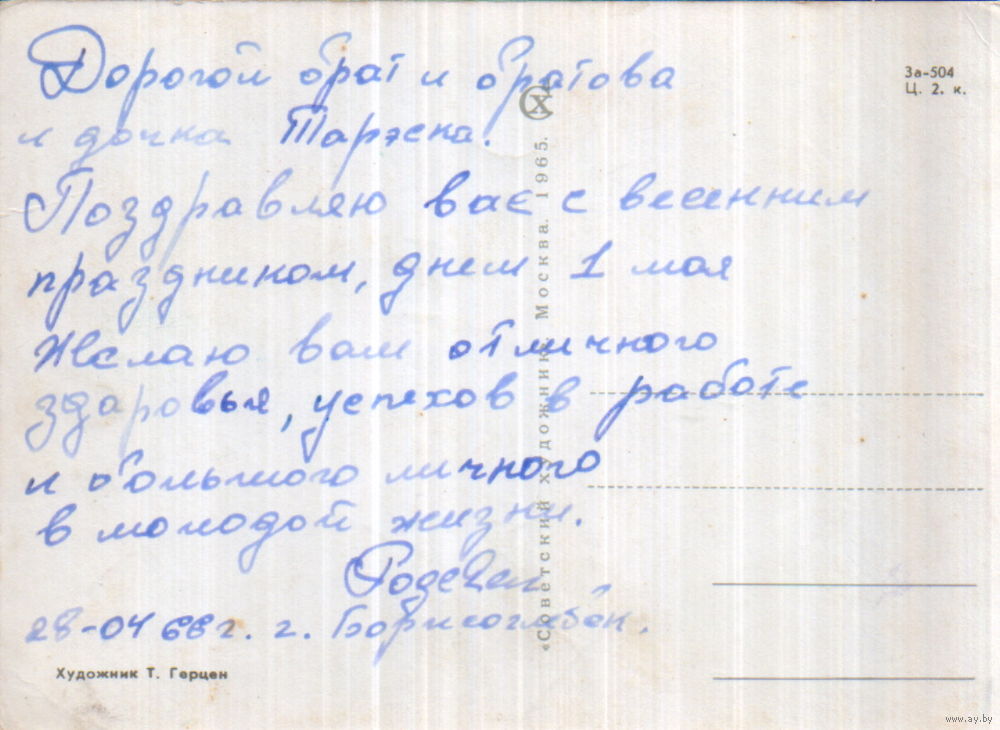 Дорогой брат и братова
и дочка Тарэска.
Поздравляю вас с весенним
праздником, днем 1 мая
Желаю вам отличного
здаровья, успехов в работе
и большого личного
в молодой жизни.
28-04 66 г. г. Борисоглебск.
Художник Т. Герцен
«Советский художник». Москва. 1965.
За-504
Ц. 2. к.
www.ay.by